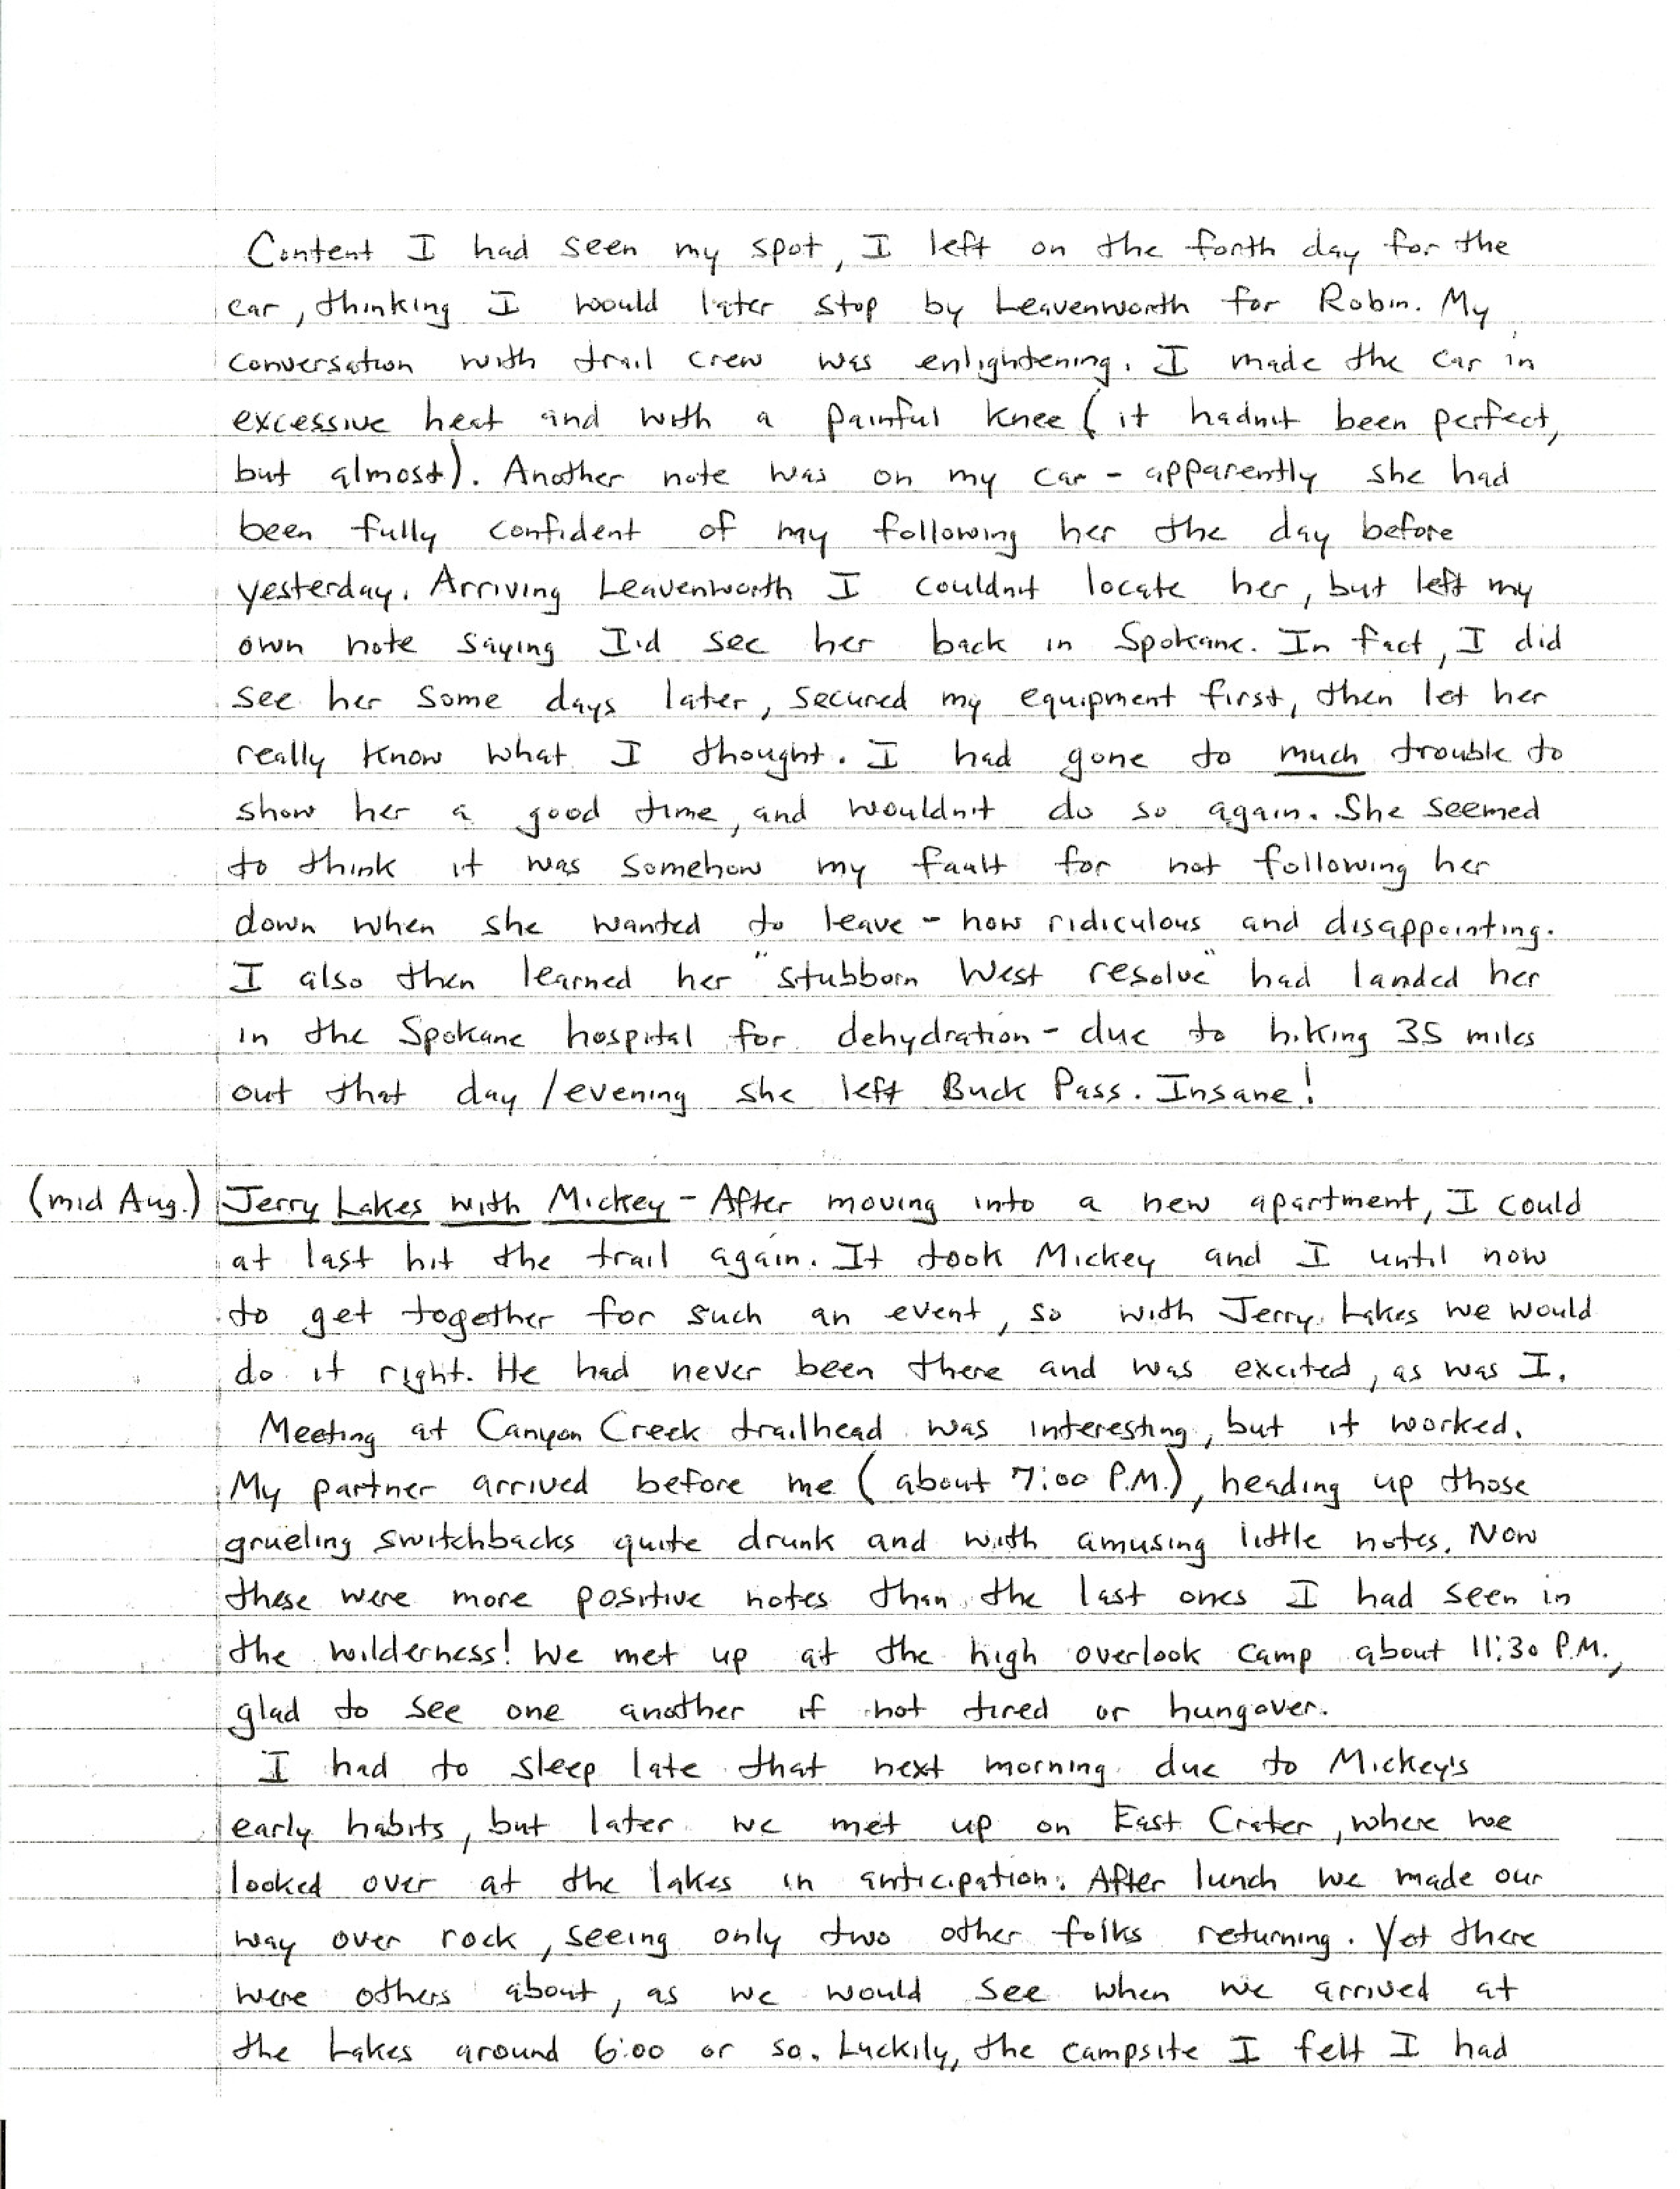 Content I had seen my spot, I left on the forth day for the
car, thinking I would later stop by Leavenworth for Robin. My
conversation with trail crew was enlightening. I made the car in
excessive heat and with a painful knee (it hadn't been perfect,
but almost). Another note was on my car - apparently she had
been fully confident of my following her the day before
yesterday. Arriving Leavenworth I couldn't locate her, but left my
own note saying I'd see her back in Spokane. In fact, I did
see her some days later, secured my equipment first, then let her
really know what I thought. I had gone to much trouble to
show her a good time, and wouldn't do so again. She seemed
to think it was somehow my fault for not following her
down when she wanted to leave - how ridiculous and disappointing.
I also then learned her "stubborn West resolve" had landed her
in the Spokane hospital for dehydration - due to hiking 35 miles
out that day/evening she left Buck Pass. Insane!
(mid Aug.) Jerry Lakes with Mickey - After moving into a new apartment, I could
at last hit the trail again. It took Mickey and I until now
to get together for such an event, so with Jerry Lakes we would
do it right. He had never been there and was excited, as was I.
Meeting at Canyon Creek trailhead was interesting, but it worked.
My partner arrived before me (about 7:00 P.M.), heading up those
grueling switchbacks quite drunk and with amusing little notes. Now
these were more positive notes than the last ones I had seen in
the wilderness! We met up at the high overlook camp about 11:30 P.M.,
glad to see one another if not tired or hungover.
I had to sleep late that next morning due to Mickey's
early habits, but later we met up on East Crater, where we
looked over at the lakes in anticipation. After lunch we made our
way over rock, seeing only two other folks returning. Yet there
were others about, as we would see when we arrived at
the Lakes around 6:00 or so. Luckily, the campsite I felt I had